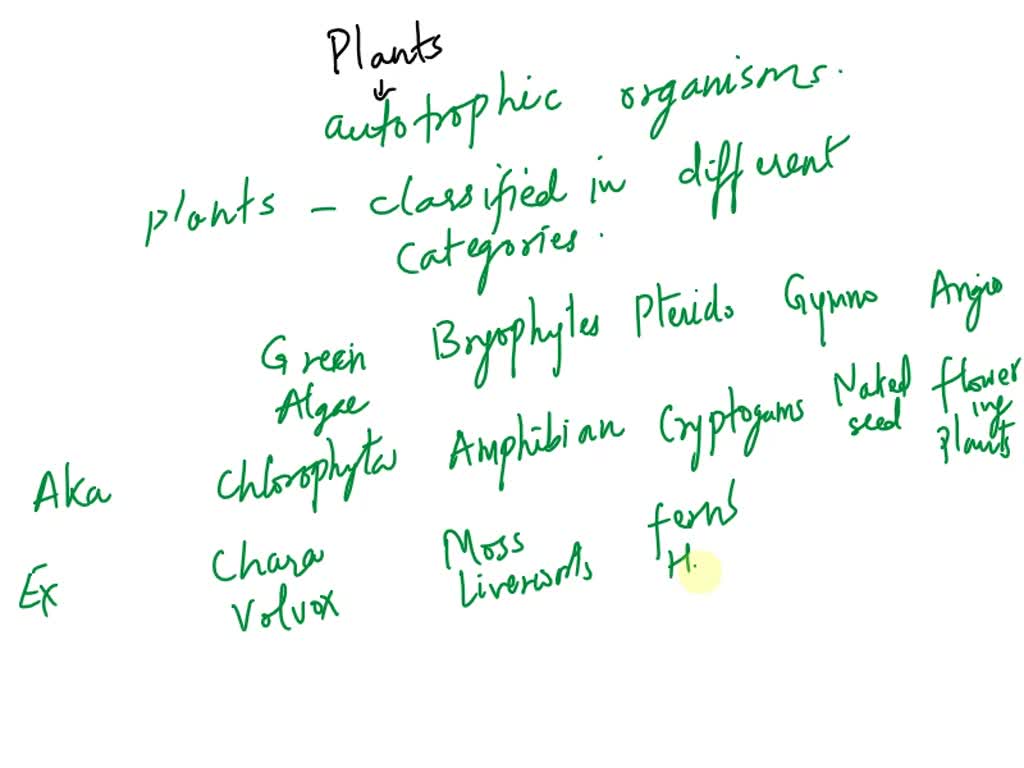 Plants
autotrophic organisms.
plants - classified in different
categories.
Green Bryophytes Pterido Gymno Angio
Algae
Aka Chlorophyta Amphibian Cryptogams Naked seed flower ing plants
Ex Chara Moss ferns
Volvox Liverworts H.